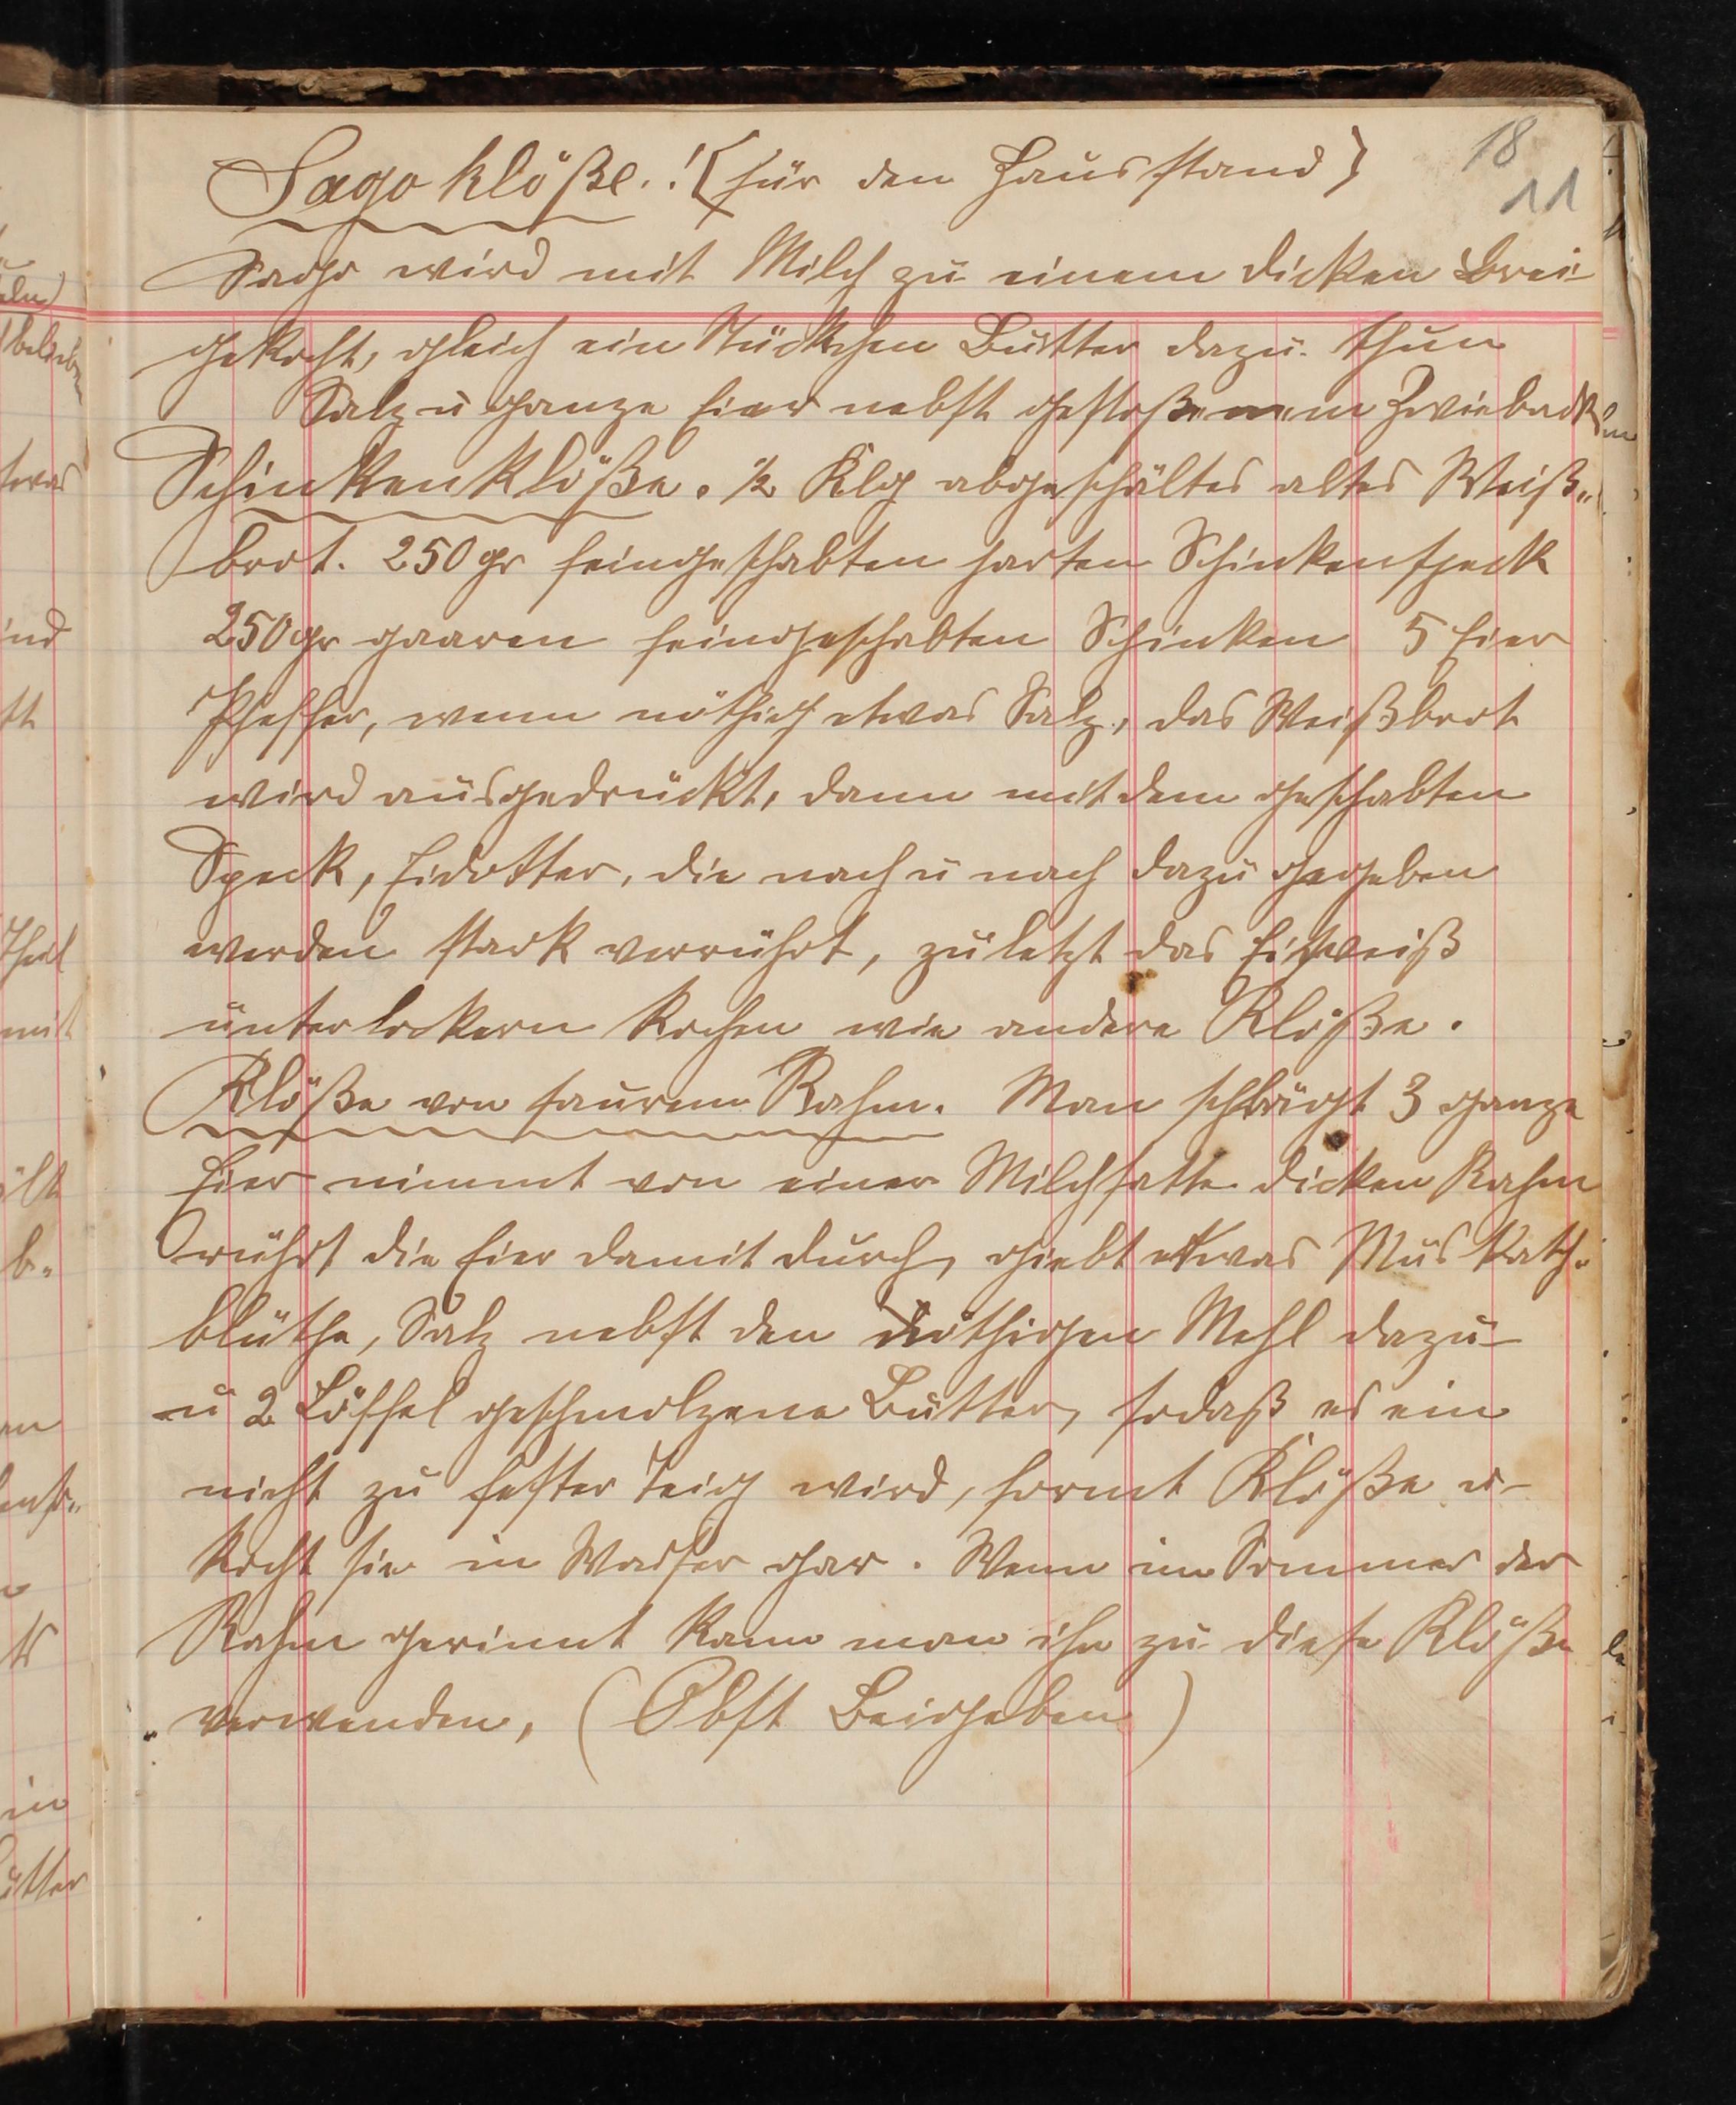 18
11
Sago klöße.! (für den Hausstand)
Sago wird mit Milch zu einem dicken Brei
gekocht, gleich ein Stückchen Butter dazu thun
Salz u ganze Eier nebst gestoßenem Zwieback
Schinkenklöße. ½ Klg abgeschältes altes Weiß„
brot. 250 gr feingeschabten harten Schinkenspeck
250 gr gaaren feingeschabten Schinken 5 Eier
Pfeffer, wenn nöthig etwas Salz, das Weißbrot
wird ausgedrückt, dann mit dem geschabten
Speck, Eidotter, die nach u nach dazu gegeben
werden stark verrührt, zuletzt das Eiweiß
unter lockern kochen wie andere Klöße.
Klöße von saurem Rahm. Man schlägt 3 ganze
Eier nimmt von einer Milchsatte dicken Rahm
rührt die Eier damit durch, giebt etwas Muskath„
blüthe, Salz nebst den nöthigen Mehl dazu
u 2 Löffel geschmolzene Butter, sodaß es ein
nicht zu fester Teig wird, formt Klöße u
kocht sie in Wasser gar. Wenn im Sommer der
Rahm gerinnt kann man ihn zu diese Klöße
verwenden, (Obst Beigeben)